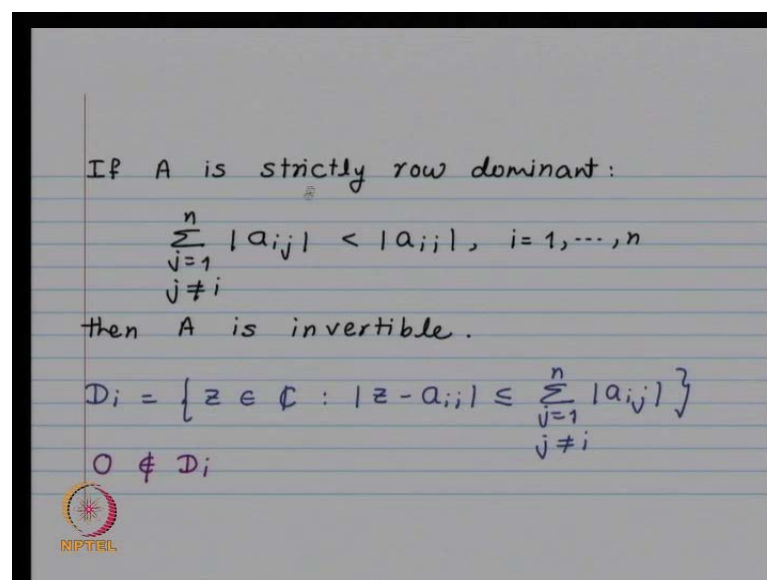 If A is strictly row dominant:
n
Σ |aij| < |aii|, i=1,···,n
j=1
j≠i
then A is invertible.
Di = { z ∈ ℂ : |z - aii| ≤ n Σ j=1 j≠i |aij| }
0 ∉ Di
NPTEL